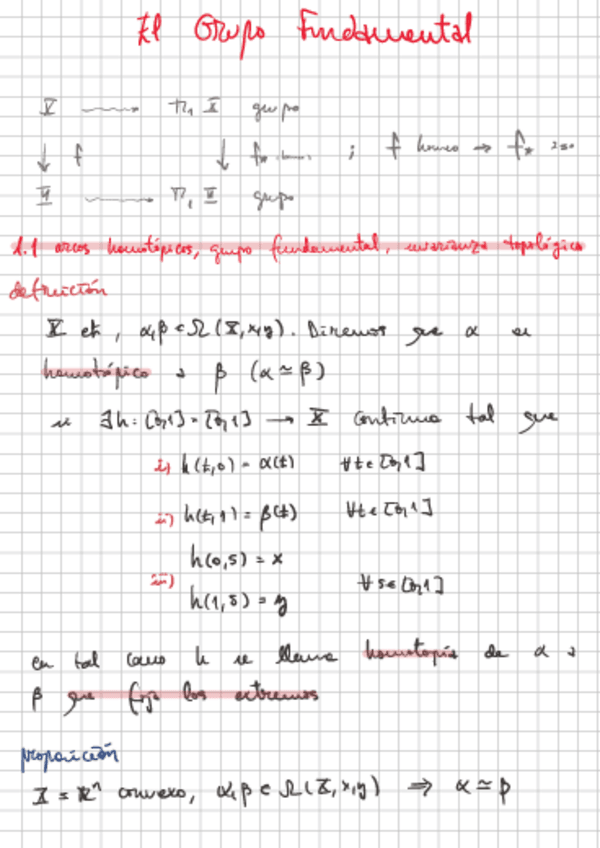 El Grupo Fundamental
X ⟶ π₁ X grupo
↓ f ↓ f* hom. ; f homeo ⇒ f* iso
Y ⟶ π₁ Y grupo
1.1 arcos homotópicos, grupo fundamental, invarianza topológica
definición
X et, α,β ∈ Ω(X,x,y). Diremos que α es
homotópico a β (α ≃ β)
si ∃h: [0,1]×[0,1] ⟶ X continua tal que
i) h(t,0) = α(t) ∀t∈[0,1]
ii) h(t,1) = β(t) ∀t∈[0,1]
h(0,s) = x
iii) ∀s∈[0,1]
h(1,s) = y
en tal caso h se llama homotopía de α a
β que fija los extremos
proposición
X = ℝⁿ convexo, α,β ∈ Ω(X,x,y) ⇒ α ≃ β